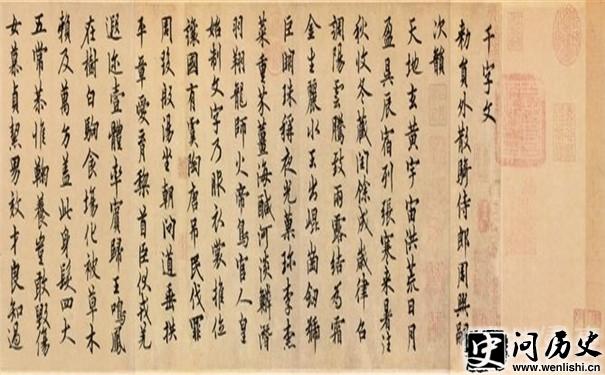 千字文
勅員外散騎侍郎周興嗣
次韻
天地玄黃宇宙洪荒日月
盈昃辰宿列張寒來暑往
秋收冬藏閏餘成歲律召
調陽雲騰致雨露結為霜
金生麗水玉出崐崗劍號
巨闕珠稱夜光菓珎李柰
菜重芥薑海鹹河淡鱗潛
羽翔龍師火帝鳥官人皇
始制文字乃服衣裳推位
讓國有虞陶唐弔民伐罪
周發殷湯坐朝問道垂拱
平章愛育黎首臣伏戎羌
遐迩壹體率賓歸王鳴鳳
在樹白駒食場化被草木
賴及萬方盖此身髮四大
五常恭惟鞠養豈敢毀傷
女慕貞絜男效才良知過
史 问历史
www.wenlishi.cn